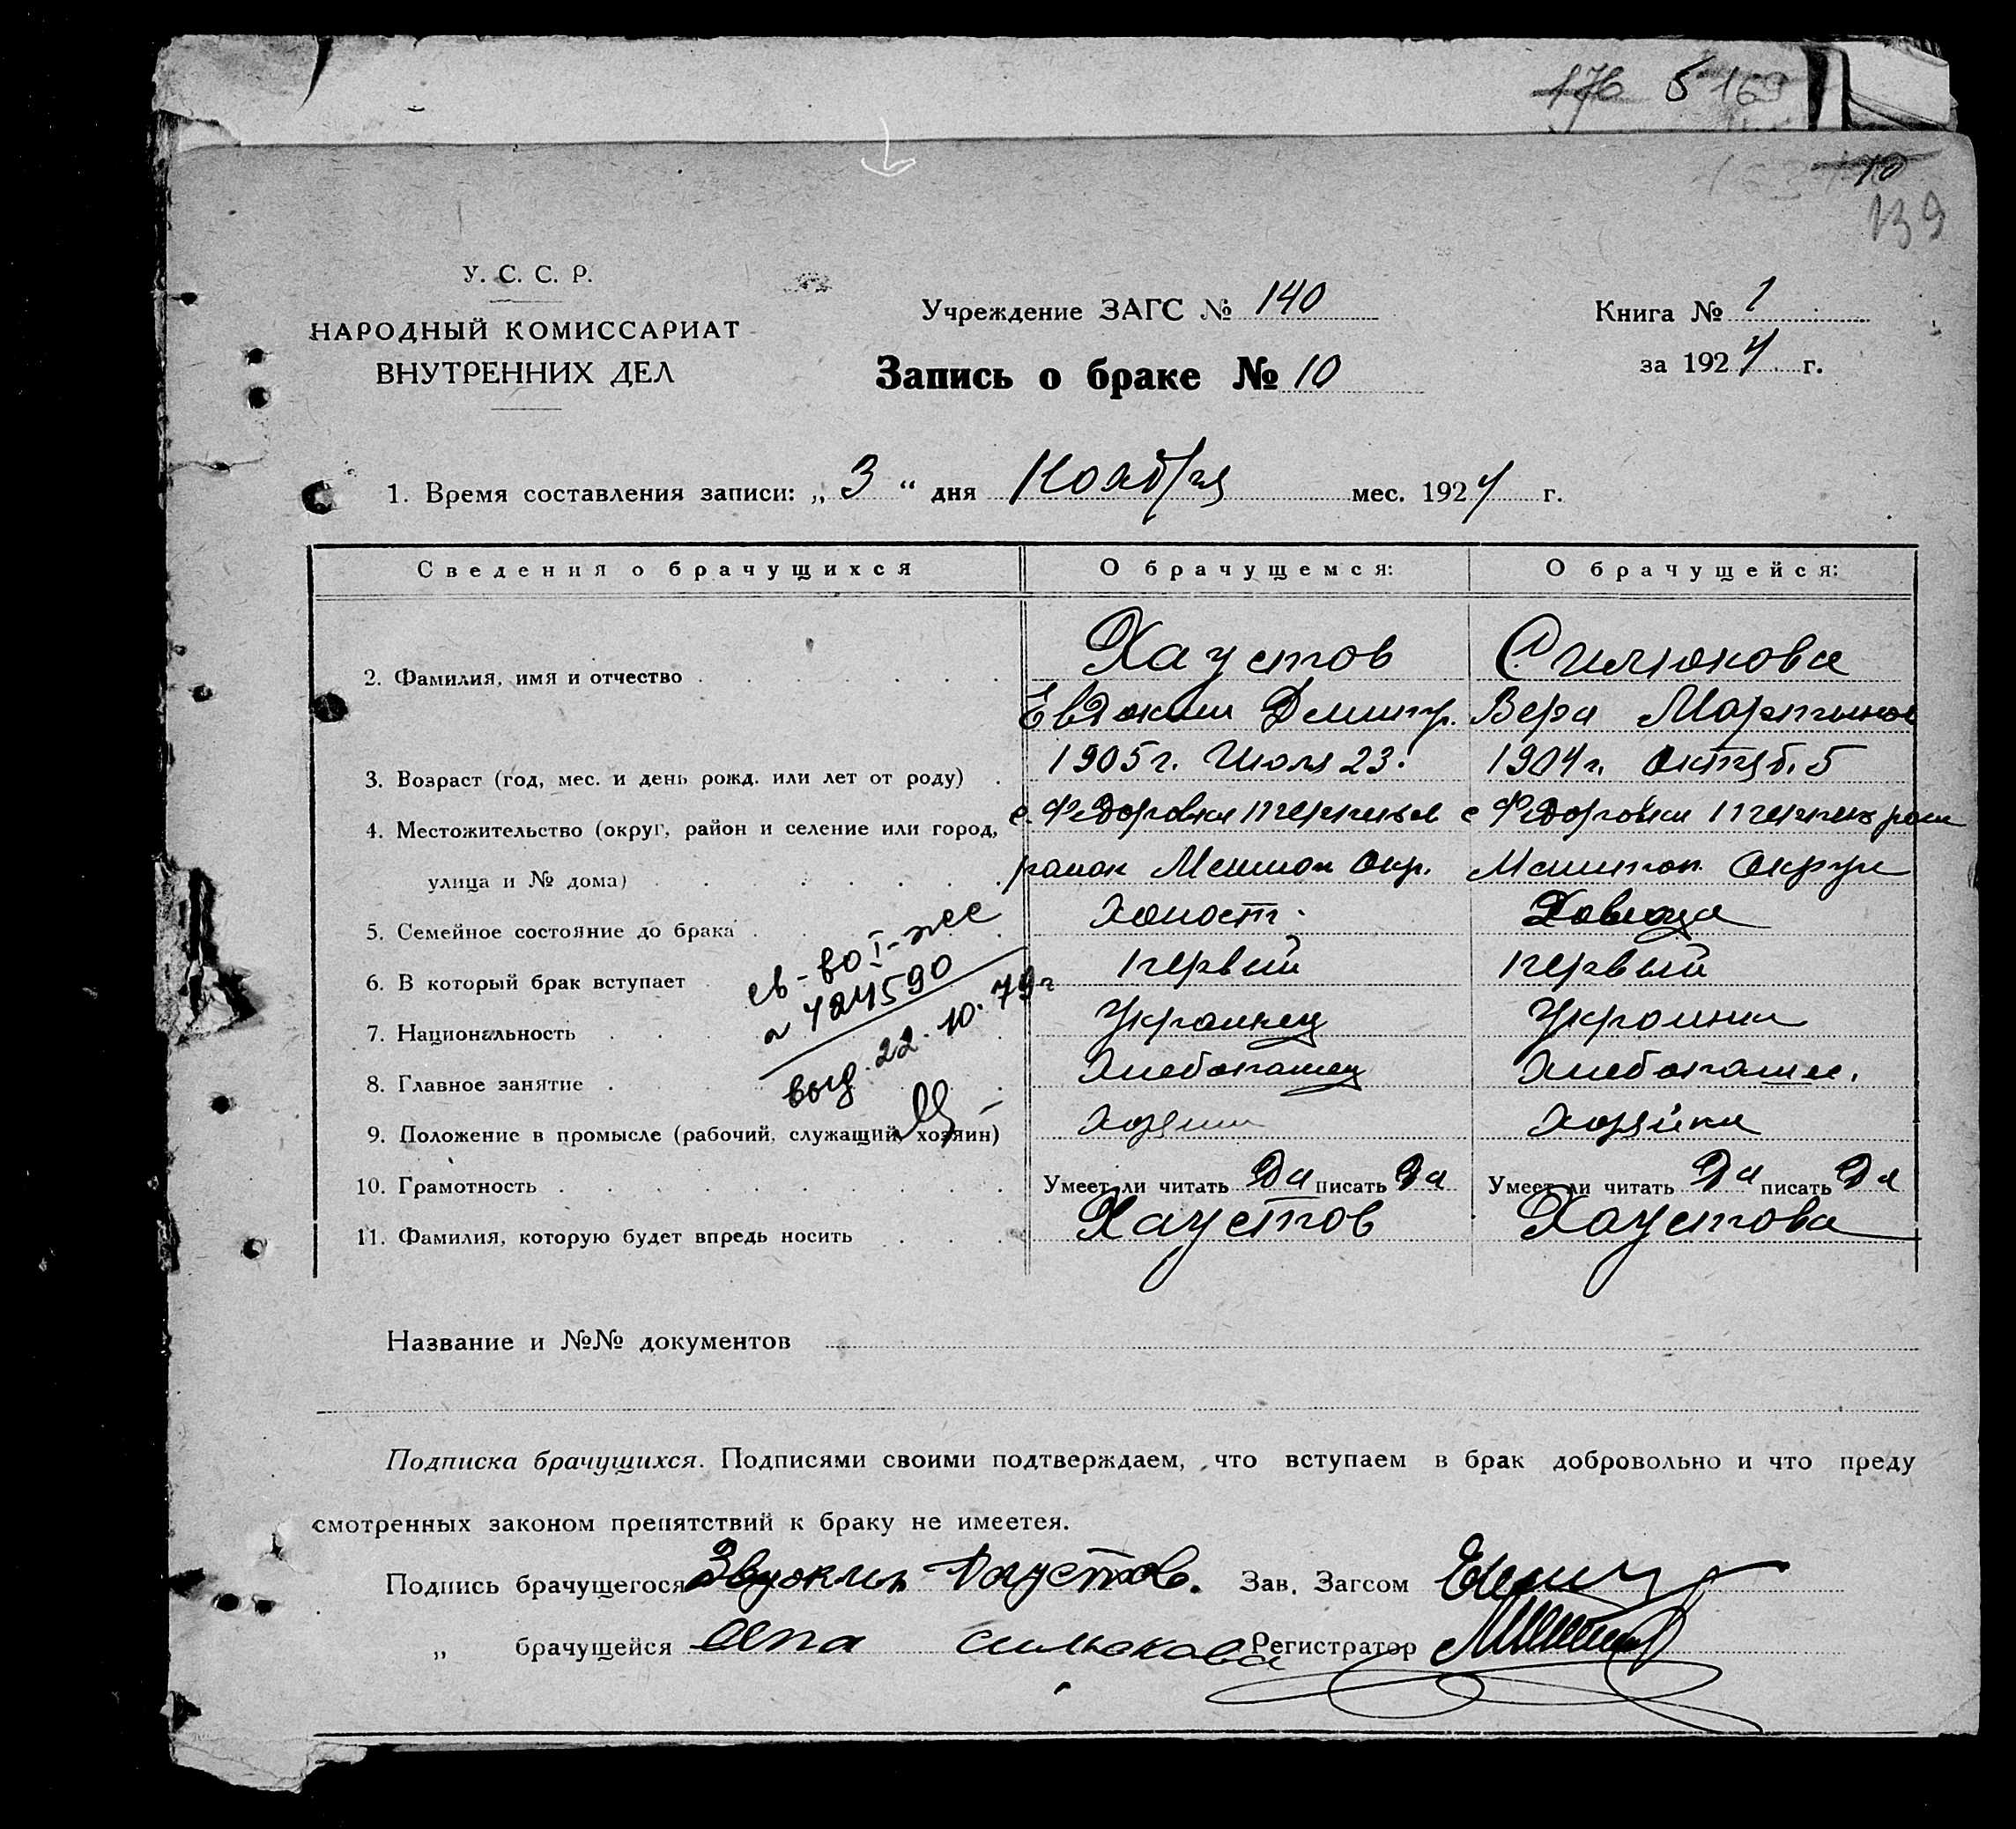 176 5 169
10
139
У. С. С. Р.
НАРОДНЫЙ КОМИССАРИАТ
ВНУТРЕННИХ ДЕЛ
Учреждение ЗАГС № 140
Запись о браке № 10
Книга № 1
за 1924 г.
1. Время составления записи: „ 3 “ дня Ноября мес. 1924 г.
Сведения о брачущихся О брачущемся: О брачущейся:
2. Фамилия, имя и отчество Хаустов Силюкова
Евдоким Дмитр. Вера Мартынов
3. Возраст (год, мес. и день рожд. или лет от роду) 1905 г. Июля 23. 1904 г. Октяб. 5
4. Местожительство (округ, район и селение или город, с. Федоровки с Федоровки
улица и № дома) район Окр. Округ
5. Семейное состояние до брака Холост. Девица
6. В который брак вступает первый первый
7. Национальность Украинец Украинка
8. Главное занятие Хлебопашец Хлебопаше.
9. Положение в промысле (рабочий, служащий, хозяин) Хозяин Хозяйка
10. Грамотность Умеет ли читать Да писать Да Умеет ли читать Да писать Да
11. Фамилия, которую будет впредь носить Хаустов Хаустова
св-во I-
424590
выд. 22.10.79г
Название и №№ документов
Подписка брачущихся. Подписями своими подтверждаем, что вступаем в брак добровольно и что преду
смотренных законом препятствий к браку не имеется.
Подпись брачущегося Хаустов. Зав. Загсом
„ брачущейся Силюкова Регистратор